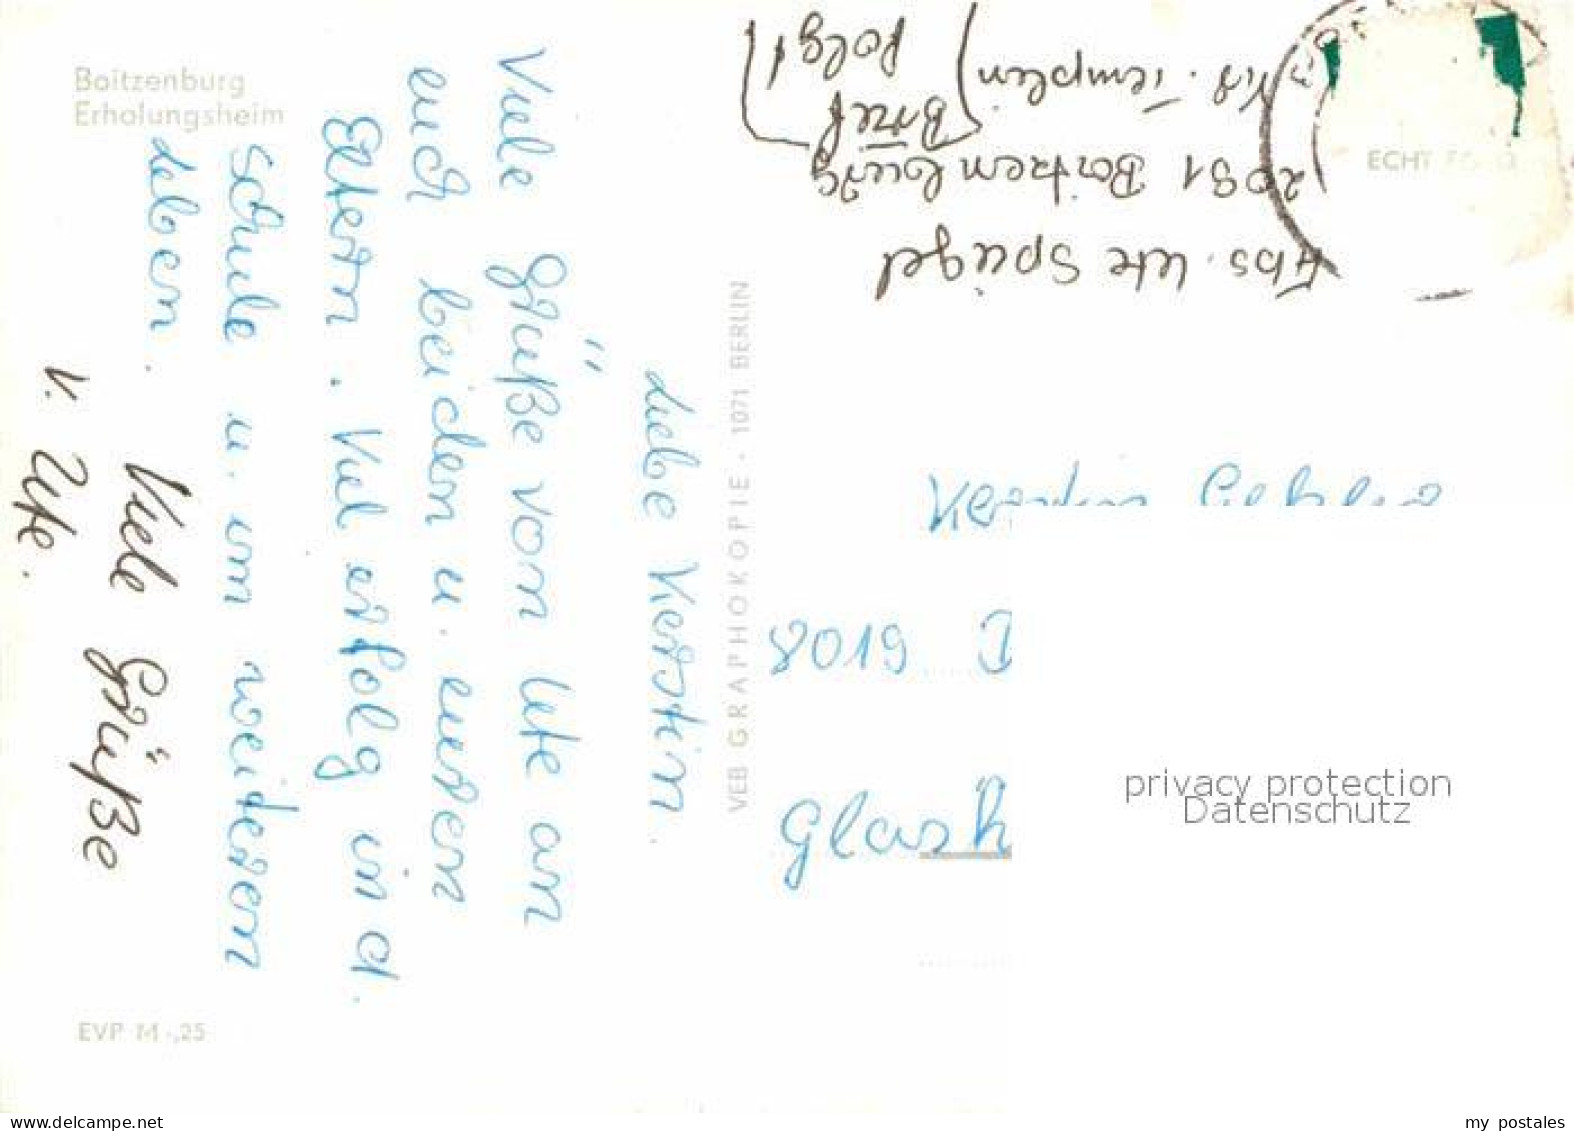 Boitzenburg
Erholungsheim
Liebe Kerstin.
Viele Grüße von Ute an
euch beiden u. euren
Eltern. Viel erfolg in d.
Schule u. im weiteren
Leben.
Viele Grüße
v. Ute.
EVP M -,25
VEB GRAPHOKOPIE · 1071 BERLIN
Abs. Ute Spiegel
2091 Boitzenburg
Krs. Templin
(Brief folgt)
ECHT FOTO
Kerstin
8019 D
Glash
privacy protection
Datenschutz
www.delcampe.net
my postales